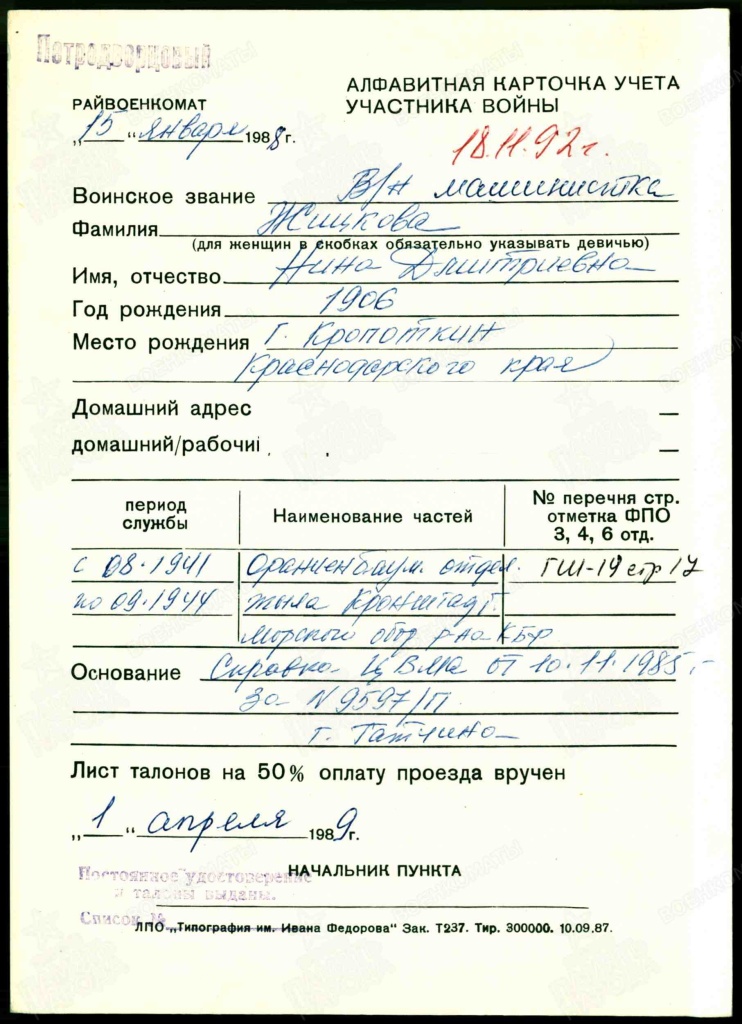 Петродворцовый
РАЙВОЕНКОМАТ
„15“ января 1988 г.
АЛФАВИТНАЯ КАРТОЧКА УЧЕТА
УЧАСТНИКА ВОЙНЫ
18.11.92г.
Воинское звание В/н машинистка
Фамилия Жицкова
(для женщин в скобках обязательно указывать девичью)
Имя, отчество Нина Дмитриевна
Год рождения 1906
Место рождения г. Кропоткин
Краснодарского края
Домашний адрес —
домашний/рабочиі —
период службы
Наименование частей
№ перечня стр. отметка ФПО 3, 4, 6 отд.
с 08.1941 Ораниенбаум. отдел. ГШ-19 стр 17
по 09.1944 тыла Кронштадт.
морского обор р-на КБФ
Основание Справка ЦВМА от 10.11.1985.
За N 9597/П
г. Гатчина
Лист талонов на 50% оплату проезда вручен
„1“ апреля 1989г.
НАЧАЛЬНИК ПУНКТА
Постоянное удостоверение
и талоны выданы.
Список №
ЛПО „Типография им. Ивана Федорова“ Зак. Т237. Тир. 300000. 10.09.87.